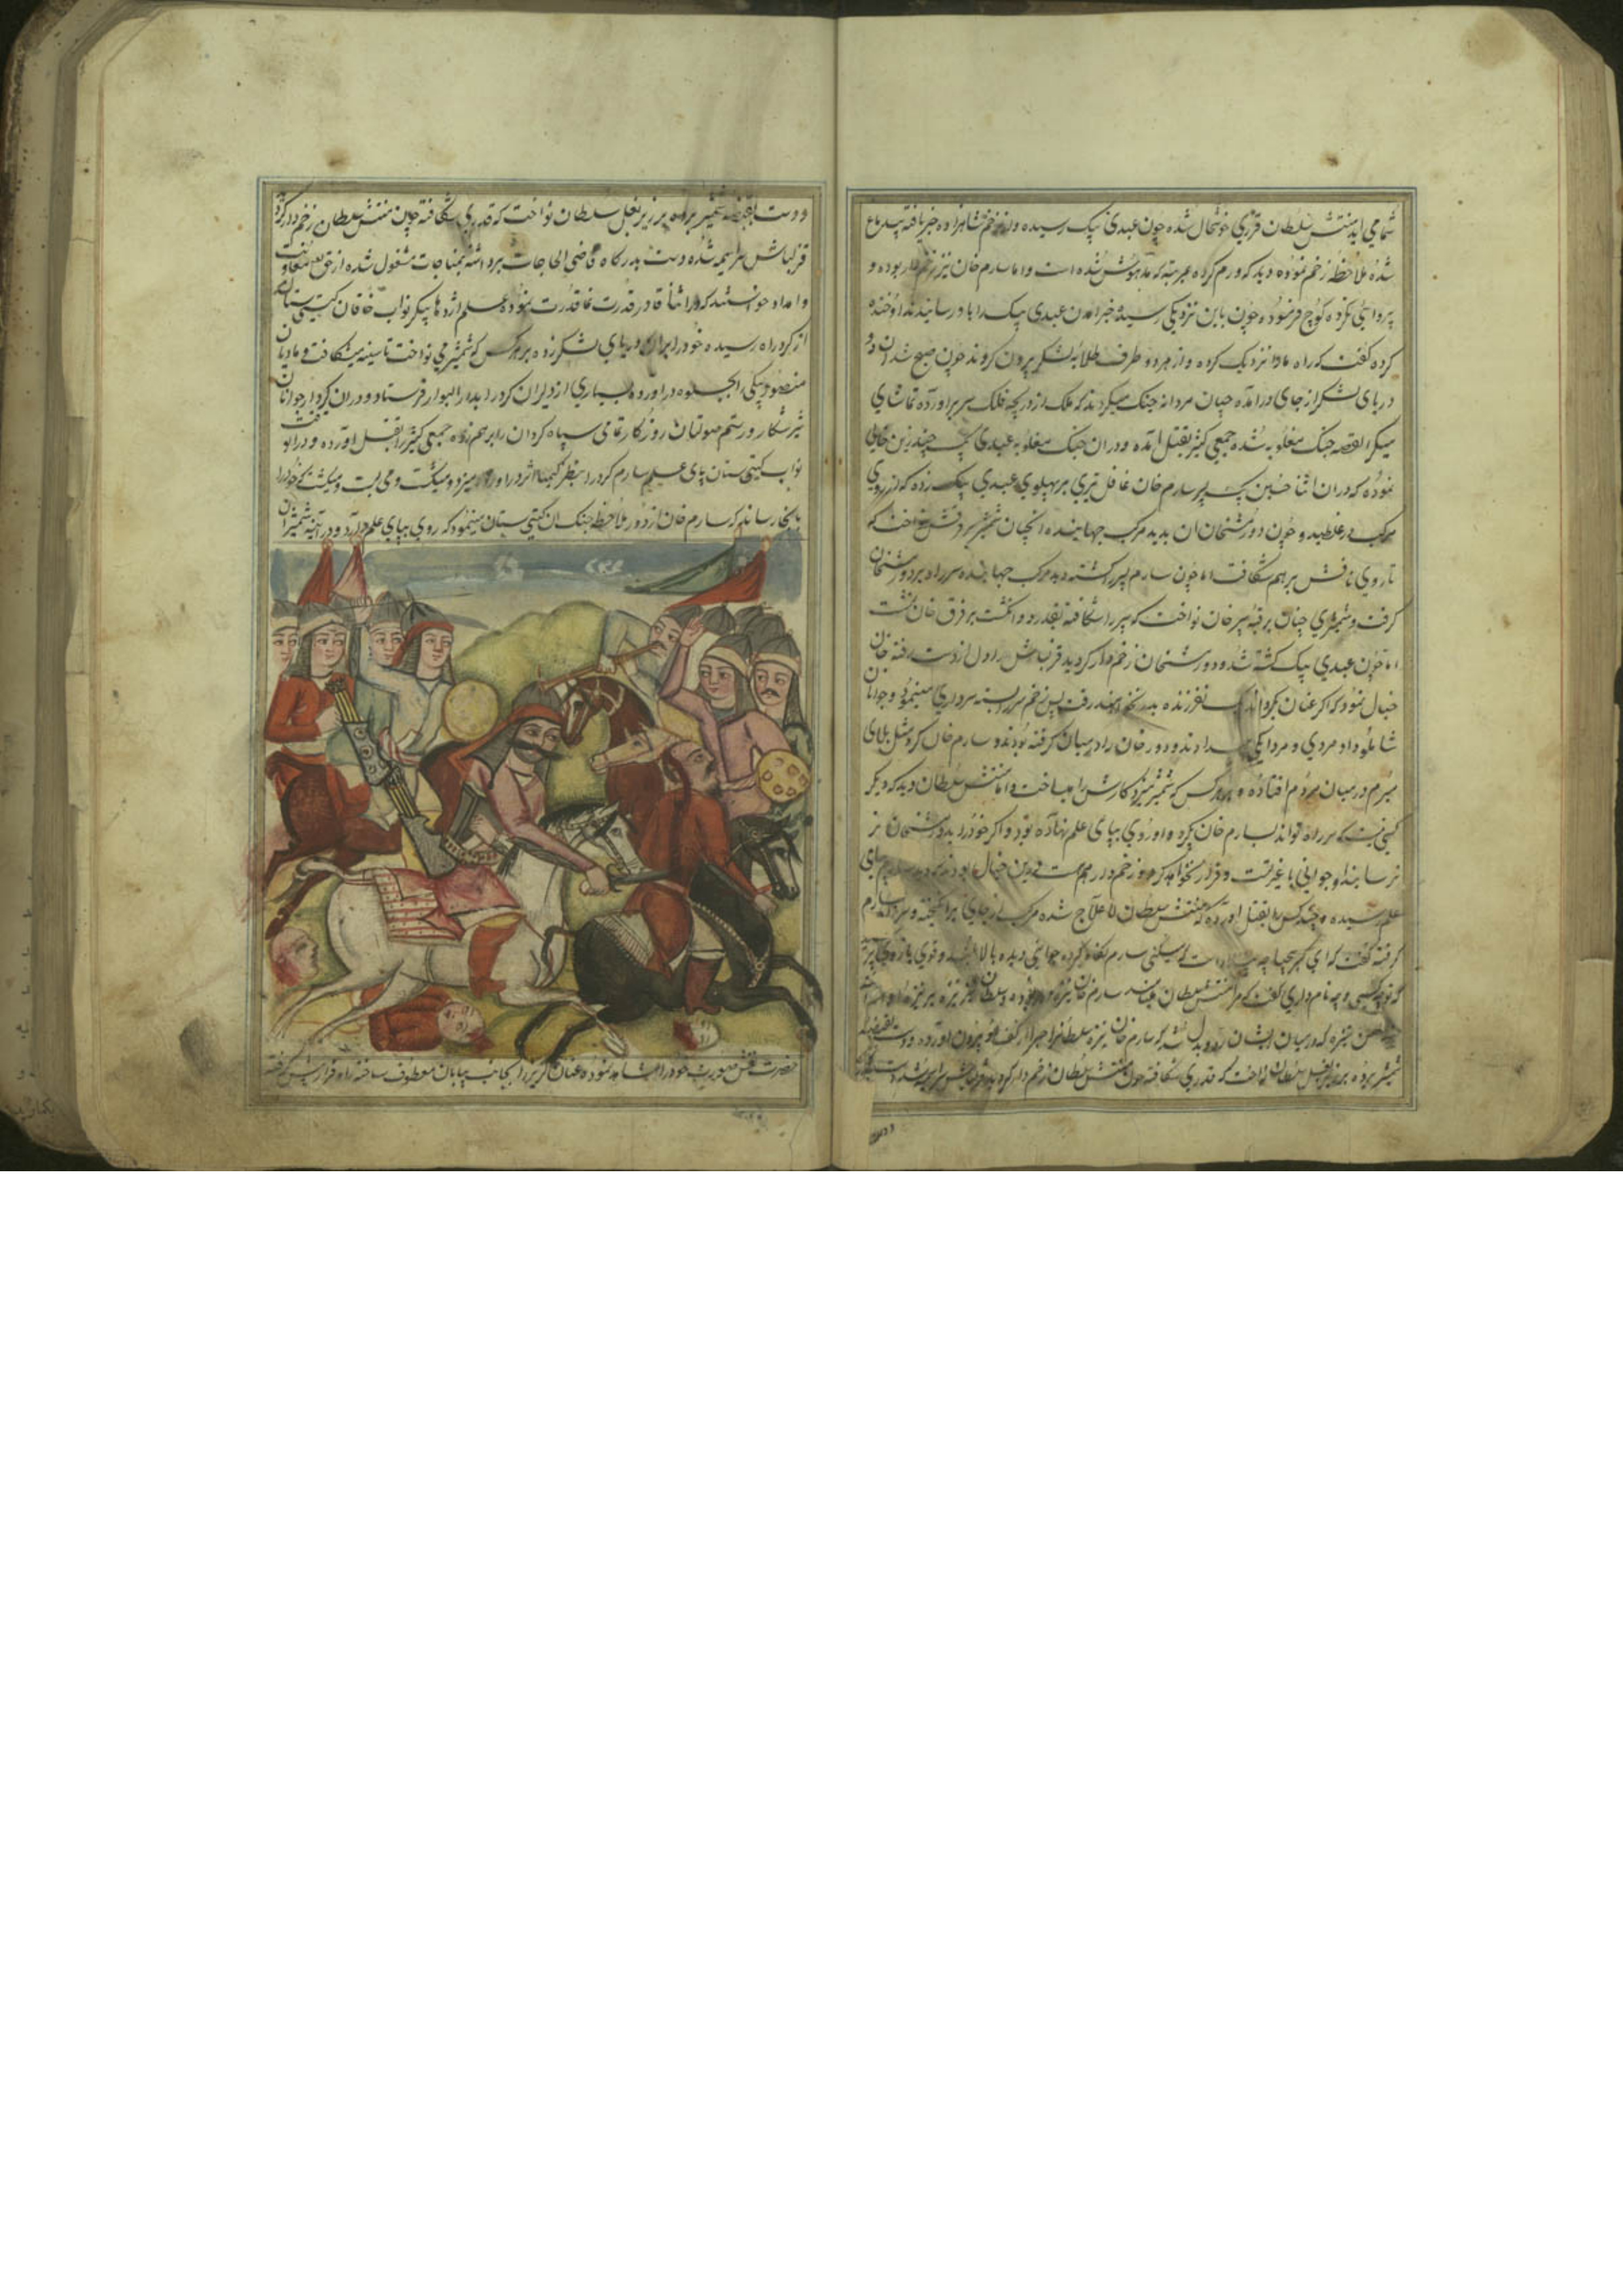 شما می اید منتش سلطان قدری خوشحال شده چون عبدی بیک رسیده و از زخم شاهزاده خبر یافته پیاده
شده ملاحظه زخم نموده دید که ورم کرده بمرتبه که مدهوش شده است و اما سارم خان نیز زخم دار بوده و
پروائی نکرده کوچ فرموده چون باین نزدیکی رسیده خبر امدن عبدی بیک را باو رسانیدند او خنده
کرده گفت که راه مارا نزدیک کرده و از هر دو طرف طلایه لشکر بیرون کردند چون صبح شد ان دو
دریای لشکر از جای درامده چنان مردانه جنگ میکردند که ملک از دریچه فلک سر براورده تماشای
میکرد القصه جنگ مغلوبه شده جمعی کثیر بقتل امده و دران جنگ مغلوبه عبدی بیک چند زین خالی
نموده که دران اثنا حسین بیک پسر سارم خان غافل تیری بر پهلوی عبدی بیک زده که از روی
مرکب در غلطید و چون دورمشخان ان بدید مرکب جهانیده انچنان شمشیر بر فرقش نواخت که
تا روی نافش برهم شکافت اما چون سارم پسر را کشته دید مرکب جهانیده سر راه بر دورمشخان
گرفت و شمشیری چنان بر قبه سپر خان نواخت که سپر را شکافته بقدر دو انگشت بر فرق خان نشست
اما چون عبدی بیک کشته شد و دورمشخان زخم دار گردید قزلباش را دل از دست رفته خان
خیال نمود که اگر عنان بگرداند یک نفر زنده بدر نخواهند رفت پس زخم سر را بسته سرداری مینمود و جوانان
شاملو داد مردی و مردانگی میدادند و دور خان را در میان گرفته بودند و سارم خان کرد مثل بلای
مبرم در میان مردم افتاده و بهر کس که شمشیر میزد کارش را میساخت و اما منتش سلطان دید که دیگر
کسی نیست که سر راه تواند بسارم خان بگیرد و او روی بپای علم نهاده بود و اگر خود را بدورمشخان
نرساند او جوانی با غیرت و فرار نخواهد کرد و زخم دار هم هست در این خیال بود که سارم بپای
علم رسیده و چند کس را بقتل اورده منتش سلطان لاعلاج شده مرکب از جای برانگیخته و سر راه بر سارم
گرفته گفت که ای سارم نگاه کرده جوانی دیده بالا بلند و قوی بازو پرسید
که تو چه کسی و چه نام داری گفت که مرا منتش سلطان میگویند سارم خان نیزه در ربوده و سلطان نیز نیزه بر نیزه او انداخت
طعن نیزه که در میان ایشان رد و بدل شد که سارم خان نیزه سلطانرا از کف او بیرون اورده و دست بقبضه
شمشیر برده بر زیر بغل سلطان نواخت که قدری شکافته چون منتش سلطان زخم دار گردید قزلباش سراسیمه شده دست
و دست بقبضه شمشیر برده بر زیر بغل سلطان نواخت که قدری شکافته چون منتش سلطان زخم دار گردید
قزلباش سراسیمه شده دست بدرگاه قاضی الحاجات برداشته بمناجات مشغول شده از حق تعالی معاونت
و امداد خواستند که در اثنا قادر قدرت نما قدرت نموده علم اژدها پیکر نواب خاقان گیتی ستان
از گرد راه رسیده خود را بران دریای لشکر زده بر هر کس که شمشیر می نواخت تا سینه میشکافت و مادیان
منصور بیکی را بجلوه دراورده بسیاری از دلیران کرد را بدار البوار فرستاد و دران گرد ار جوانان
شیر شکار و رستم صولتان روزگار تمامی سپاه کردان را برهم زده جمعی کثیر را بقتل اورده و در ان وقت
نواب گیتی ستان پای علم سارم کرد را بنظر کیمیا اثر دراورده میزد و میکشت و می بست و میکشت تا خود را
بانجا رساند که سارم خان از دور ملاحظه جنگ ان گیتی ستان مینمود که روی بپای علم دارد و در آینه شمشیر ان
حضرت نقش مهوریت خود را مشاهده نموده عنان گریز را بجانب بیابان معطوف ساخته راه فرار پیش گرفته